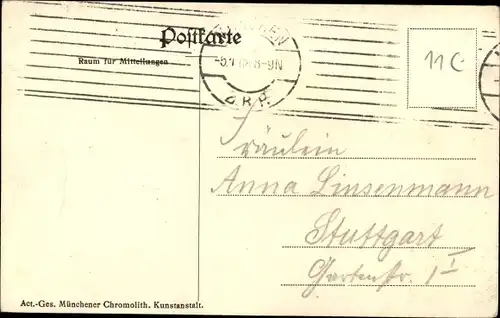 Postkarte
Raum für Mitteilungen
8-9N
11 C
Fräulein
Anna Linsenmann
Stuttgart
Gartenstr. 1 I
Act.-Ges. Münchener Chromolith. Kunstanstalt.